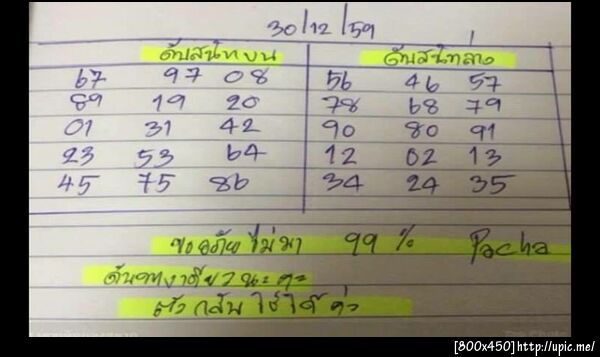 30/12/59
ดับสนิทบน ดับสนิทล่าง
67 97 08 56 46 57
89 19 20 78 68 79
01 31 42 90 80 91
23 53 64 12 02 13
45 75 86 34 24 35
ขออภัย ไม่มา 99 % Pacha
นะคะ
ตัวกลับ ใช้ได้ค่ะ
[800x450]http://upic.me/